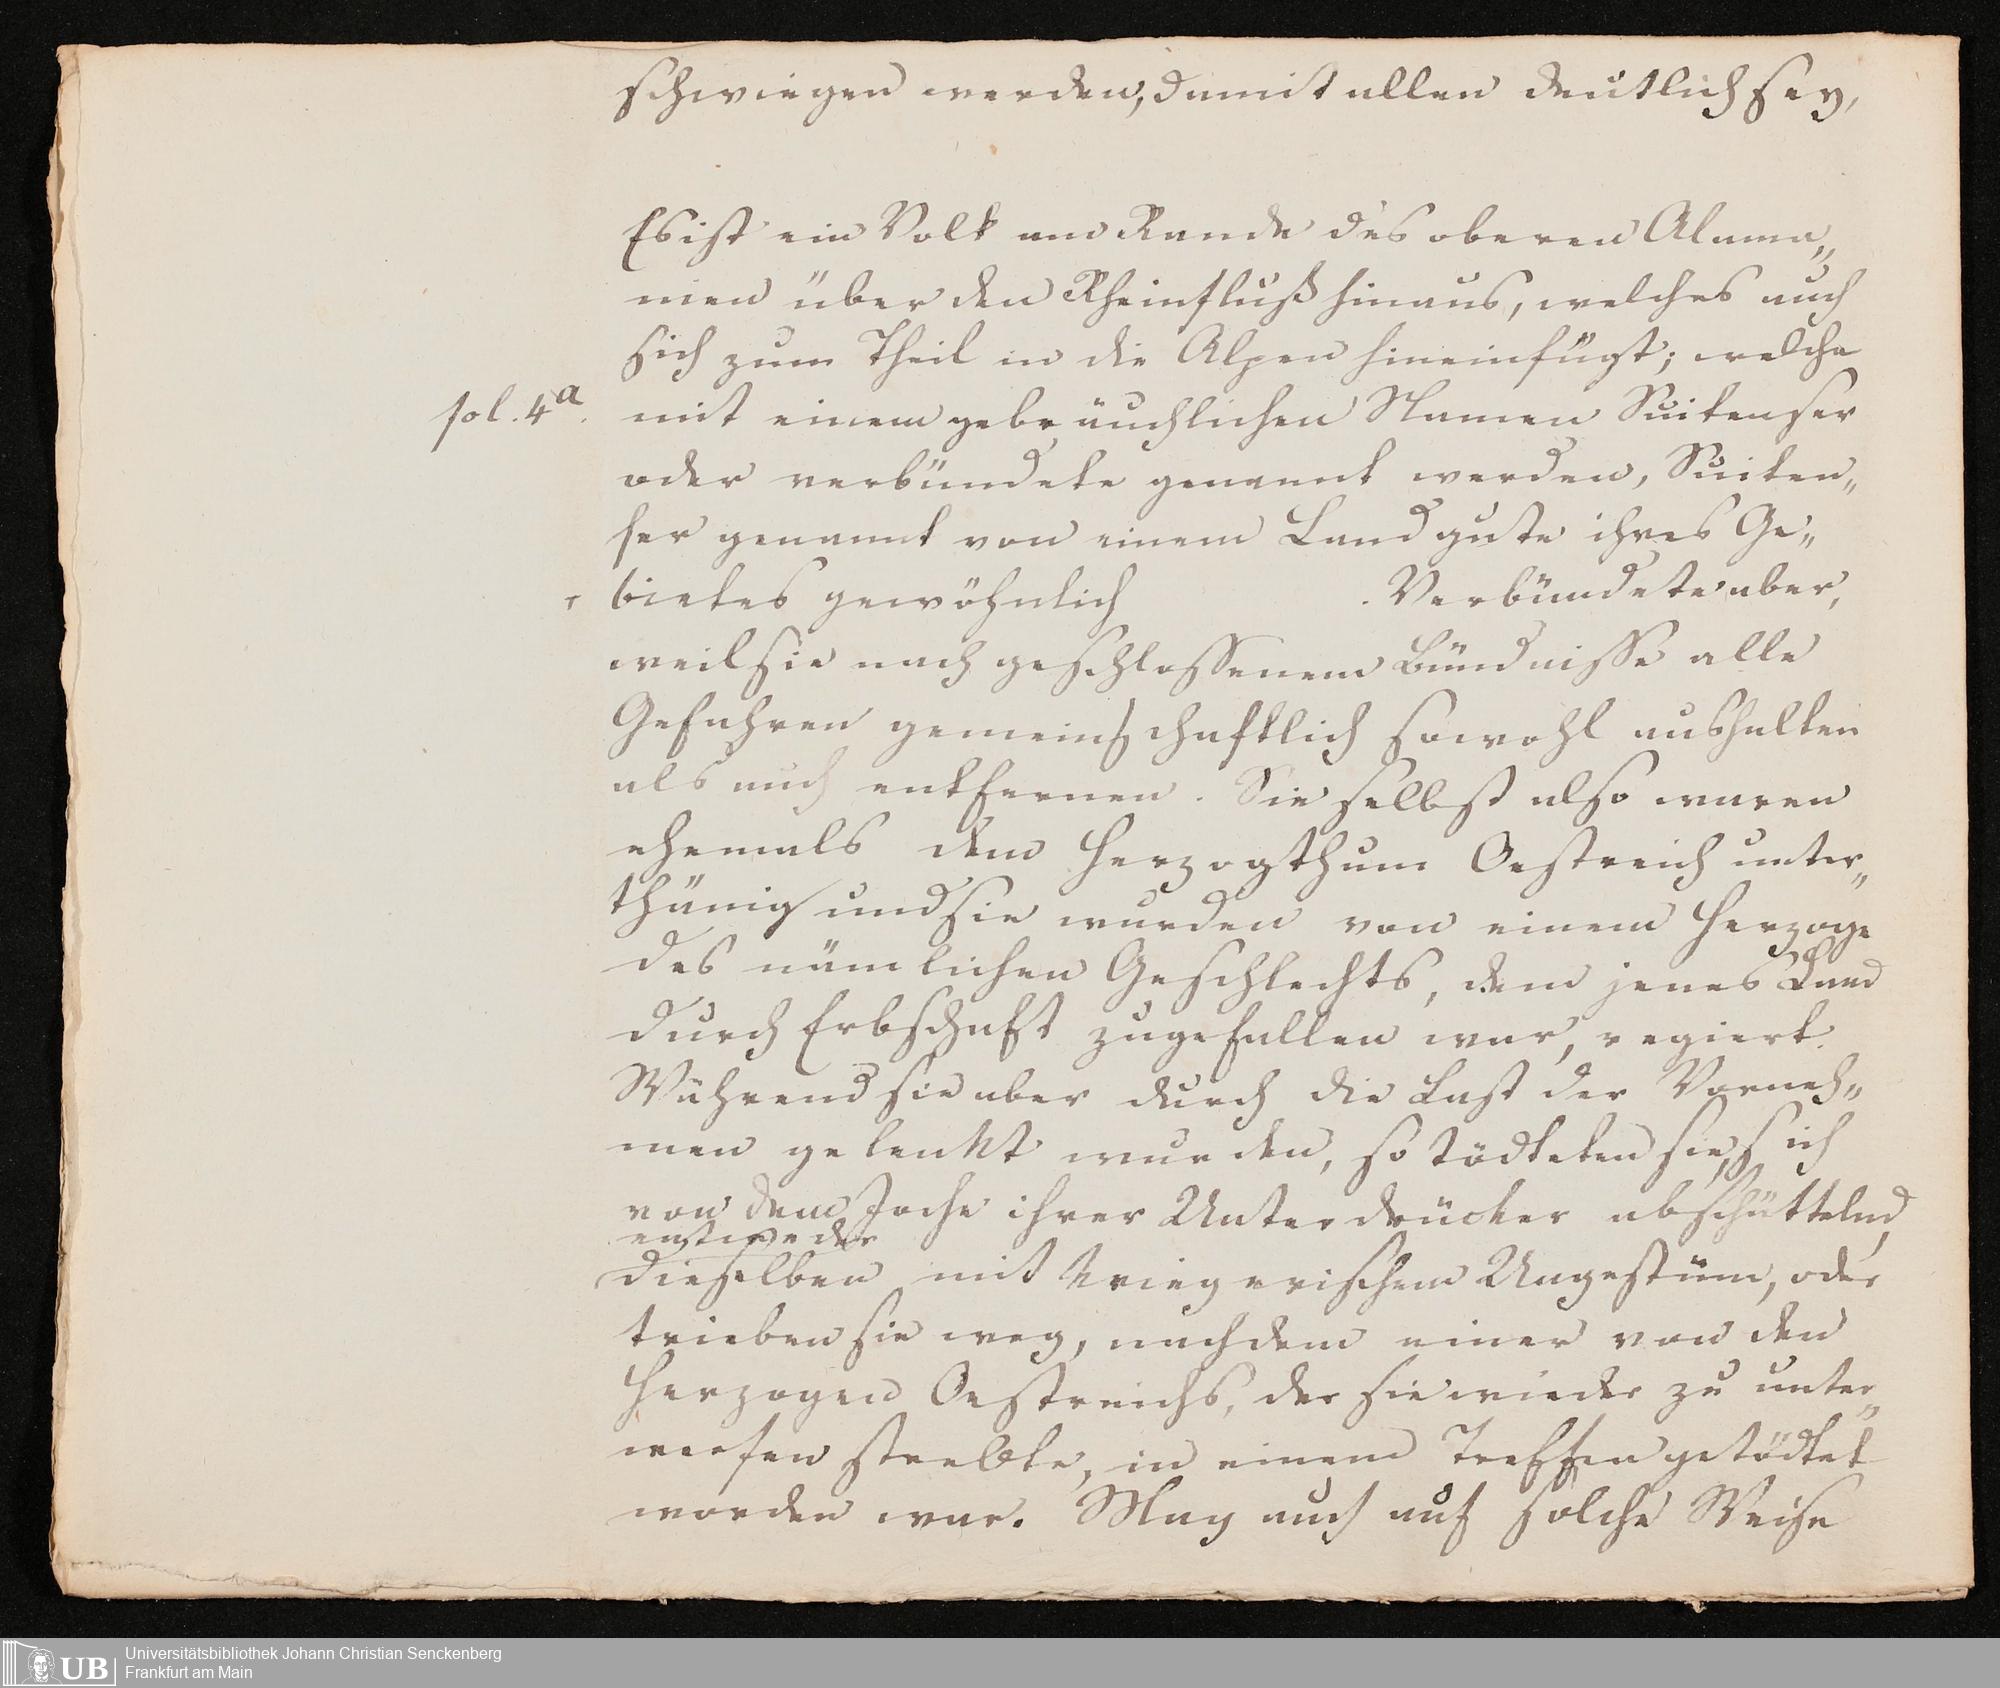 schwiegen werden, damit allen deutlich sey,
Es ist ein Volk am Rande des oberen Alaman„
nien über den Rheinfluß hinaus, welches auch
sich zum Theil in die Alpen hineinfügt; welche
fol. 4a. mit einem gebräuchlichen Namen Suitenser
oder verbündete genannt werden, Suiten„
ser genannt von einem Landgute ihres Ge„
bietes gewöhnlich . Verbündete aber,
weil sie nach geschlossenem Bündnisse alle
Gefahren gemeinschaftlich sowohl aushalten
als auch entfernen. Sie selbst also waren
ehemals dem Herzogthum Oestreich unter„
thänig und sie wurden von einem Herzoge
des nämlichen Geschlechts, dem jenes Land
durch Erbschaft zugefallen war, regiert.
Während sie aber durch die Last der Vorneh„
men gelenkt wurden, so tödteten sie, sich
von dem Joche ihrer Unterdrücker abschüttelnd,
entweder
dieselben mit kriegerischem Ungestüm, oder
trieben sie weg, nachdem einer von den
Herzogen Oestreichs, der sie wieder zu unter„
werfen strebte, in einem Treffen getödtet
worden war. Mag auch auf solche Weise
Universitätsbibliothek Johann Christian Senckenberg
Frankfurt am Main
UB